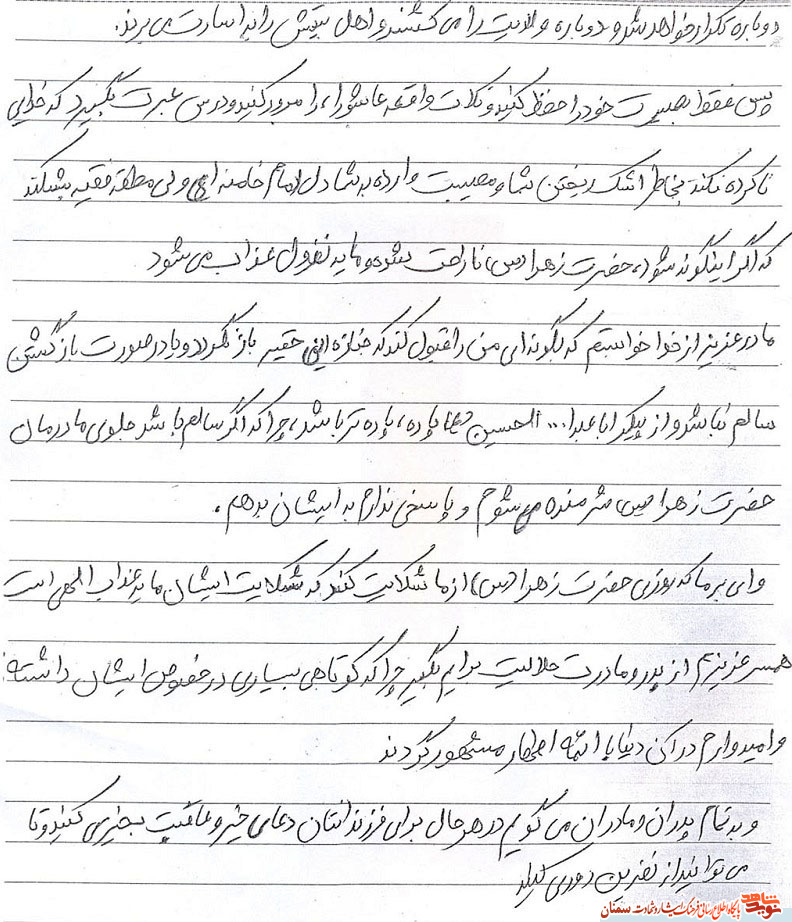 دوباره تکرار خواهد شد و دوباره ولایت را می کشند و اهل بیتش را به اسارت می برند.
پس فقط بصیرت خود را حفظ کنید و نکات واقعه عاشورا، را مرور کنید و درس عبرت بگیرید که خدایی
ناکرده نکند بخاطر اشک ریختن شما و مصیبت وارده به شما دل امام خامنه ای ولی مطلقه فقیه بشکند
که اگر اینگونه شود، حضرت زهرا (س) ناراحت شده و مایه نزول عذاب می شود
مادر عزیز از خدا خواستم که بگونه ای من را قبول کند که جنازه این حقیر باز نگردد و یا در صورت بازگشتن
سالم نباشد و از پیکر اباعبدا... الحسین پاره، پاره تر باشد، چرا که اگر سالم باشد جلوی مادرمان
حضرت زهرا (س) شرمنده می شوم و پاسخی ندارم به ایشان بدهم.
وای بر ما که روزی حضرت زهرا (س) از ما شکایت کند که شکایت ایشان مایه عذاب الهی است
همسر عزیزم از پدر و مادرت حلالیت برایم بگیر چرا که کوتاهی بسیاری در خصوص ایشان داشته
و امیدوارم در آن دنیا با ائمه اطهار مشهور گردند
و به تمام پدران و مادران می گویم در هر حال برای فرزندانتان دعای خیر و عاقبت بخیری کنید و تا
می توانید از نفرین دوری کنید
نوید شاهد
پایگاه اطلاع رسانی فرهنگ ایثار و شهادت سمنان